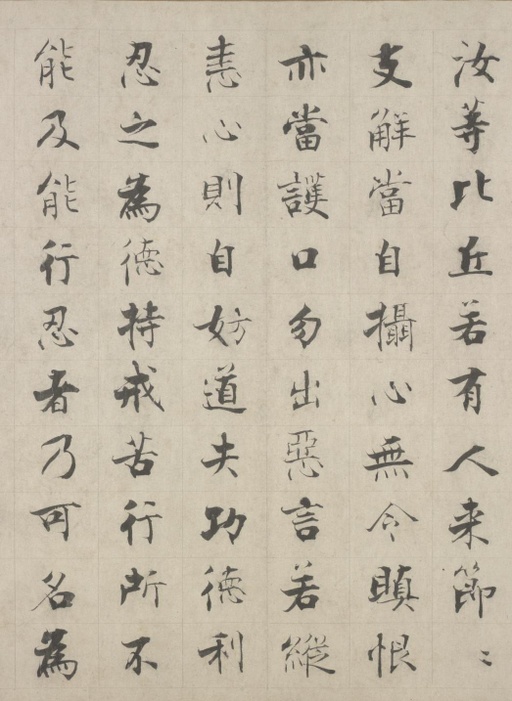 汝等比丘若有人来節〻
支解當自攝心無令瞋恨
亦當護口勿出惡言若縱
恚心則自妨道失功德利
忍之為德持戒苦行所不
能及能行忍者乃可名為